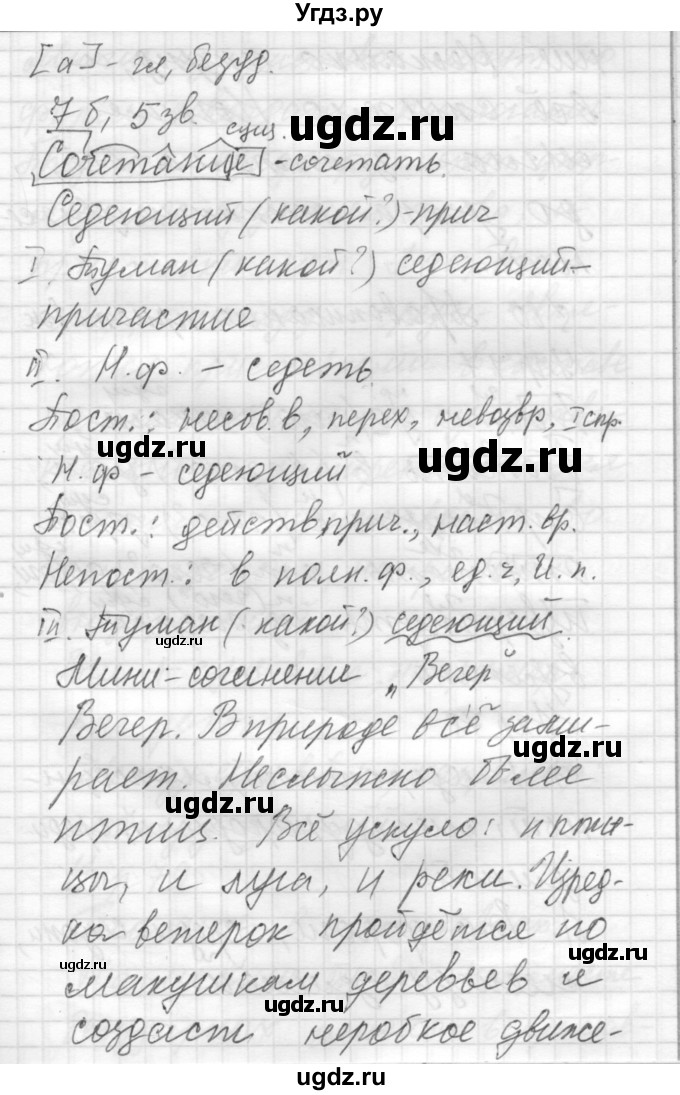 Угдз.ру
[а] - гл, безуд.
7б, 5 зв.
сущ.
Сочетание - сочетать.
Седеющий (какой?) - прич
I. Туман (какой?) седеющий -
причастие
II. Н.ф. - седеть.
Пост.: несов. в, перех, невозвр, I спр.
Н.ф - седеющий
Пост.: действ, прич., наст. вр.
Непост.: в полн. ф., ед. ч, И. п.
III. Туман (какой?) седеющий.
Мини-сочинение „Вечер"
Вечер. В природе всё зами-
рает. Неслышно более
птиц. Всё уснуло: и пти-
цы, и луга, и реки. Изред-
ка ветерок пройдётся по
макушкам деревьев и
создаст неробкое движе-
ugdz.ru
ugdz.ru
ugdz.ru
ugdz.ru
ugdz.ru
ugdz.ru
ugdz.ru
ugdz.ru
ugdz.ru
ugdz.ru
ugdz.ru
ugdz.ru